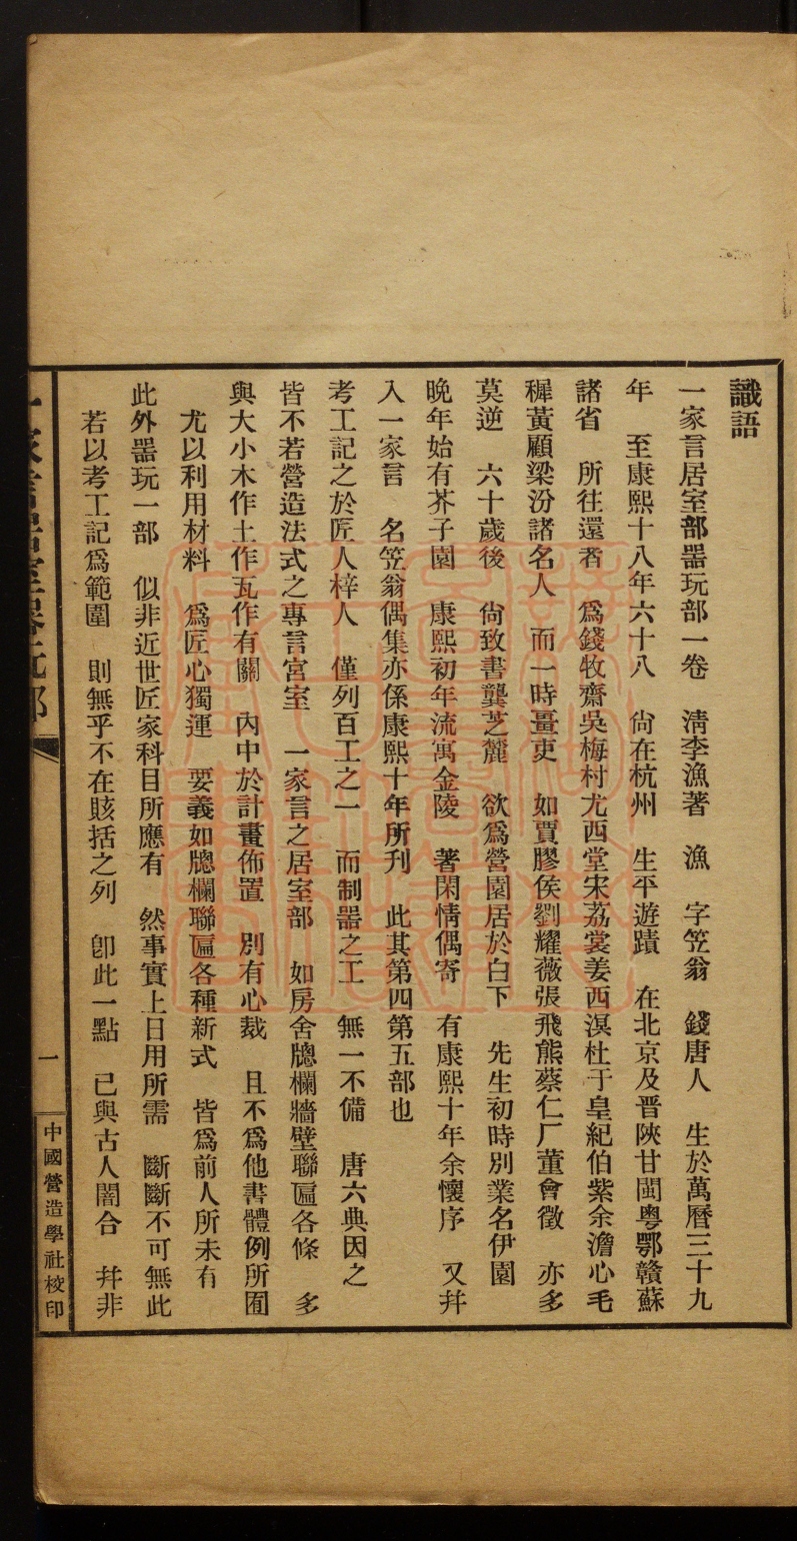 識語
一家言居室部器玩部一卷　淸李漁著　漁　字笠翁　錢唐人　生於萬曆三十九
年　至康熙十八年六十八　尙在杭州　生平遊蹟　在北京及晋陝甘閩粤鄂贛蘇
諸省　所往還者　爲錢牧齋吳梅村尤西堂宋荔裳姜西溟杜于皇紀伯紫余澹心毛
穉黃顧梁汾諸名人　而一時畺吏　如賈膠侯劉耀薇張飛熊蔡仁厂董會徵　亦多
莫逆　六十歲後　尙致書龔芝麓　欲爲營園居於白下　先生初時別業名伊園
晚年始有芥子園　康熙初年流寓金陵　著閑情偶寄　有康熙十年余懷序　又幷
入一家言　名笠翁偶集亦係康熙十年所刋　此其第四第五部也
考工記之於匠人梓人　僅列百工之一　而制器之工　無一不備　唐六典因之
皆不若營造法式之專言宮室　一家言之居室部　如房舍牕欄牆壁聯匾各條　多
與大小木作土作瓦作有關　內中於計畫佈置　別有心裁　且不爲他書體例所囿
尤以利用材料　爲匠心獨運　要義如牕欄聯匾各種新式　皆爲前人所未有
此外器玩一部　似非近世匠家科目所應有　然事實上日用所需　斷斷不可無此
若以考工記爲範圍　則無乎不在賅括之列　卽此一點　已與古人闇合　幷非
一家言居室器玩部
一
中國營造學社校印